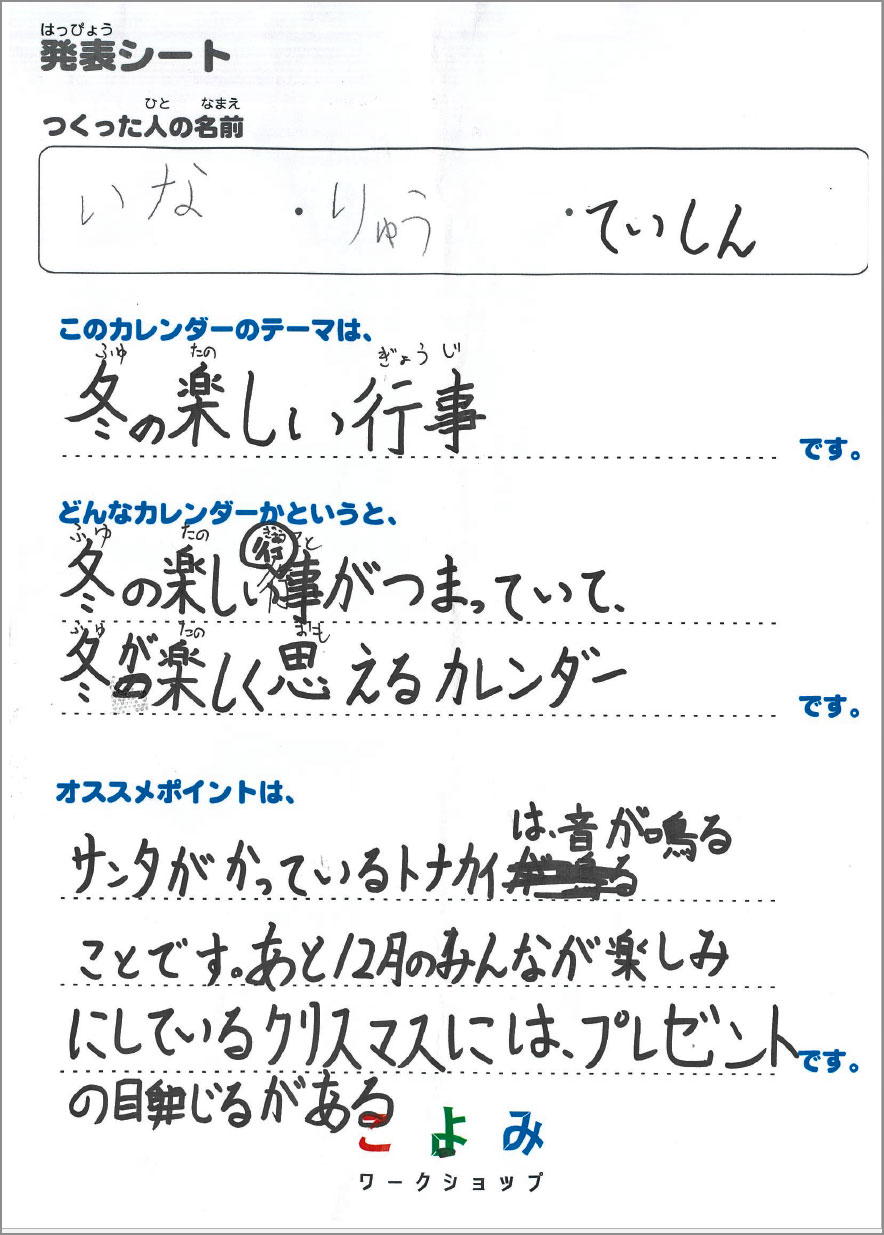 はっぴょう
発表シート
ひと なまえ
つくった人の名前
いな ・りゅう ・ていしん
このカレンダーのテーマは、
ふゆ たの ぎょうじ
冬の楽しい行事
です。
どんなカレンダーかというと、
ふゆ たの ぎょう こと
冬の楽しい行事がつまっていて、
ふゆ たの おも
冬が楽しく思えるカレンダー
です。
オススメポイントは、
は、音が鳴る
サンタがかっているトナカイ
ことです。あと12月のみんなが楽しみ
にしているクリスマスには、プレゼント
です。
の目じるしがある
こよみ
ワークショップ